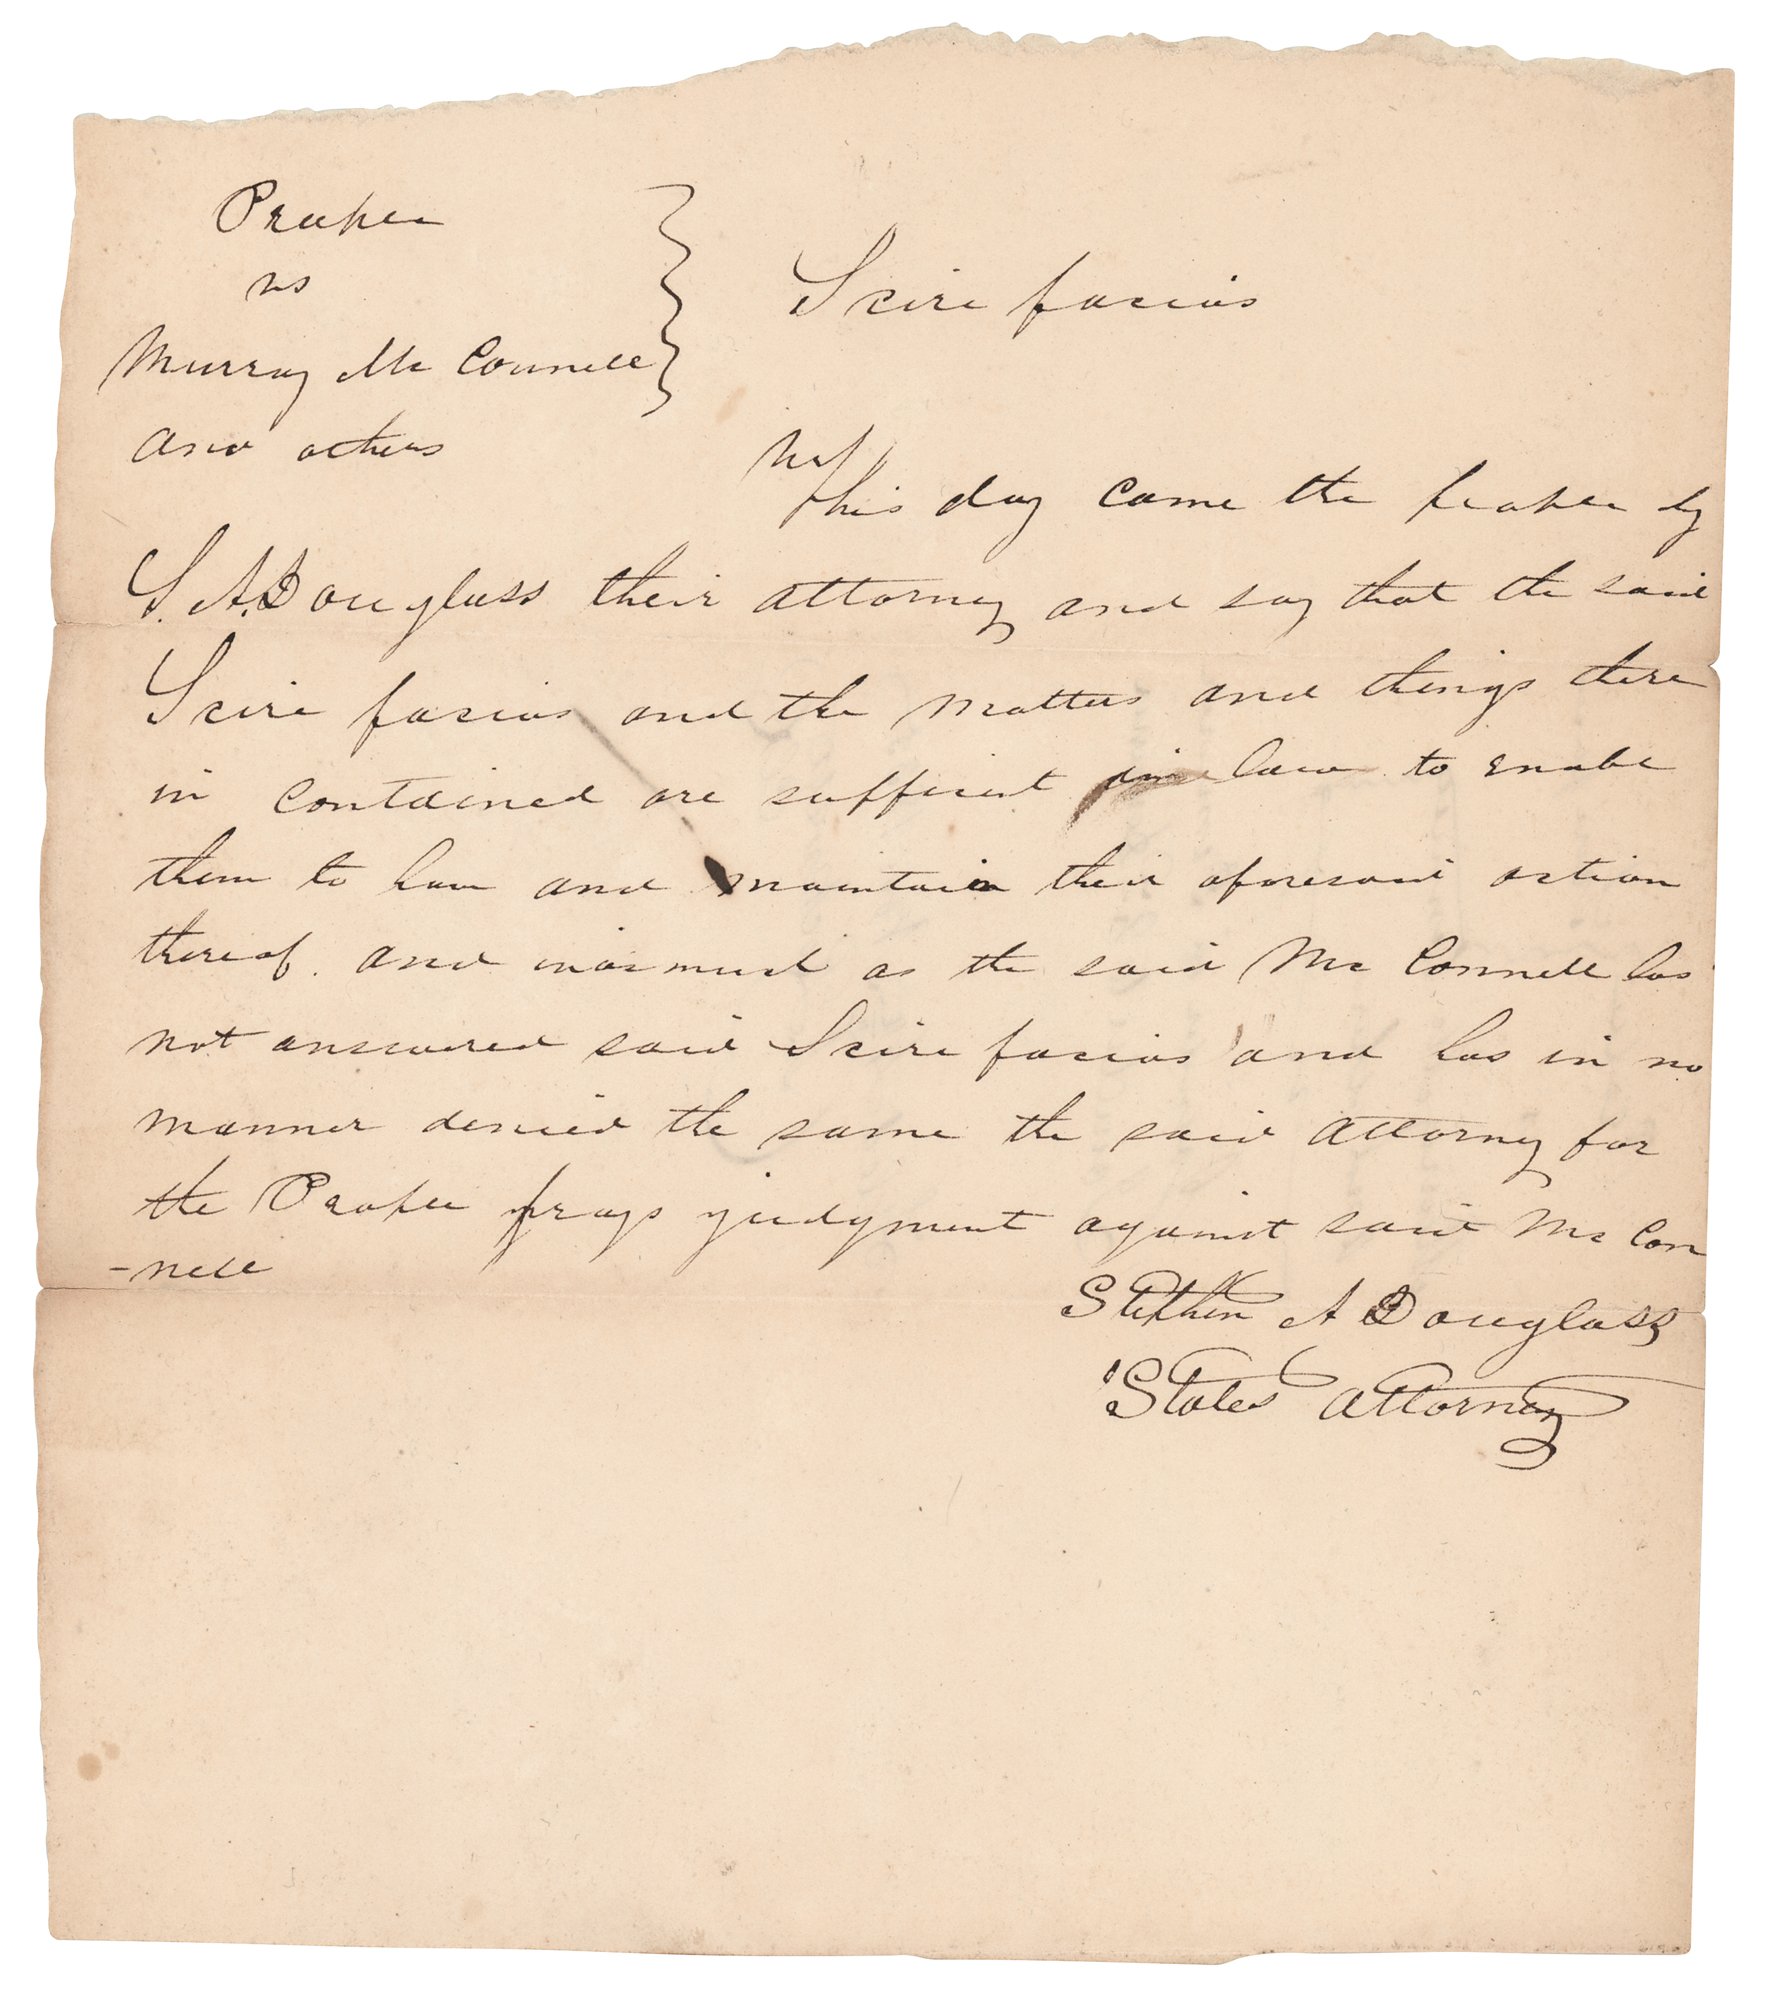 People
vs
Murray McConnell
and others
Scire facias
this day came the people by
S. A. Douglass their attorney and say that the said
Scire facias and the matters and things there
in contained are sufficient in law to enable
them to have and maintain their aforesaid action
thereof. and inasmuch as the said McConnell has
not answered said Scire facias and has in no
manner denied the same the said attorney for
the People prays judgment against said McCon
-nell
Stephen A Douglass
States Attorney